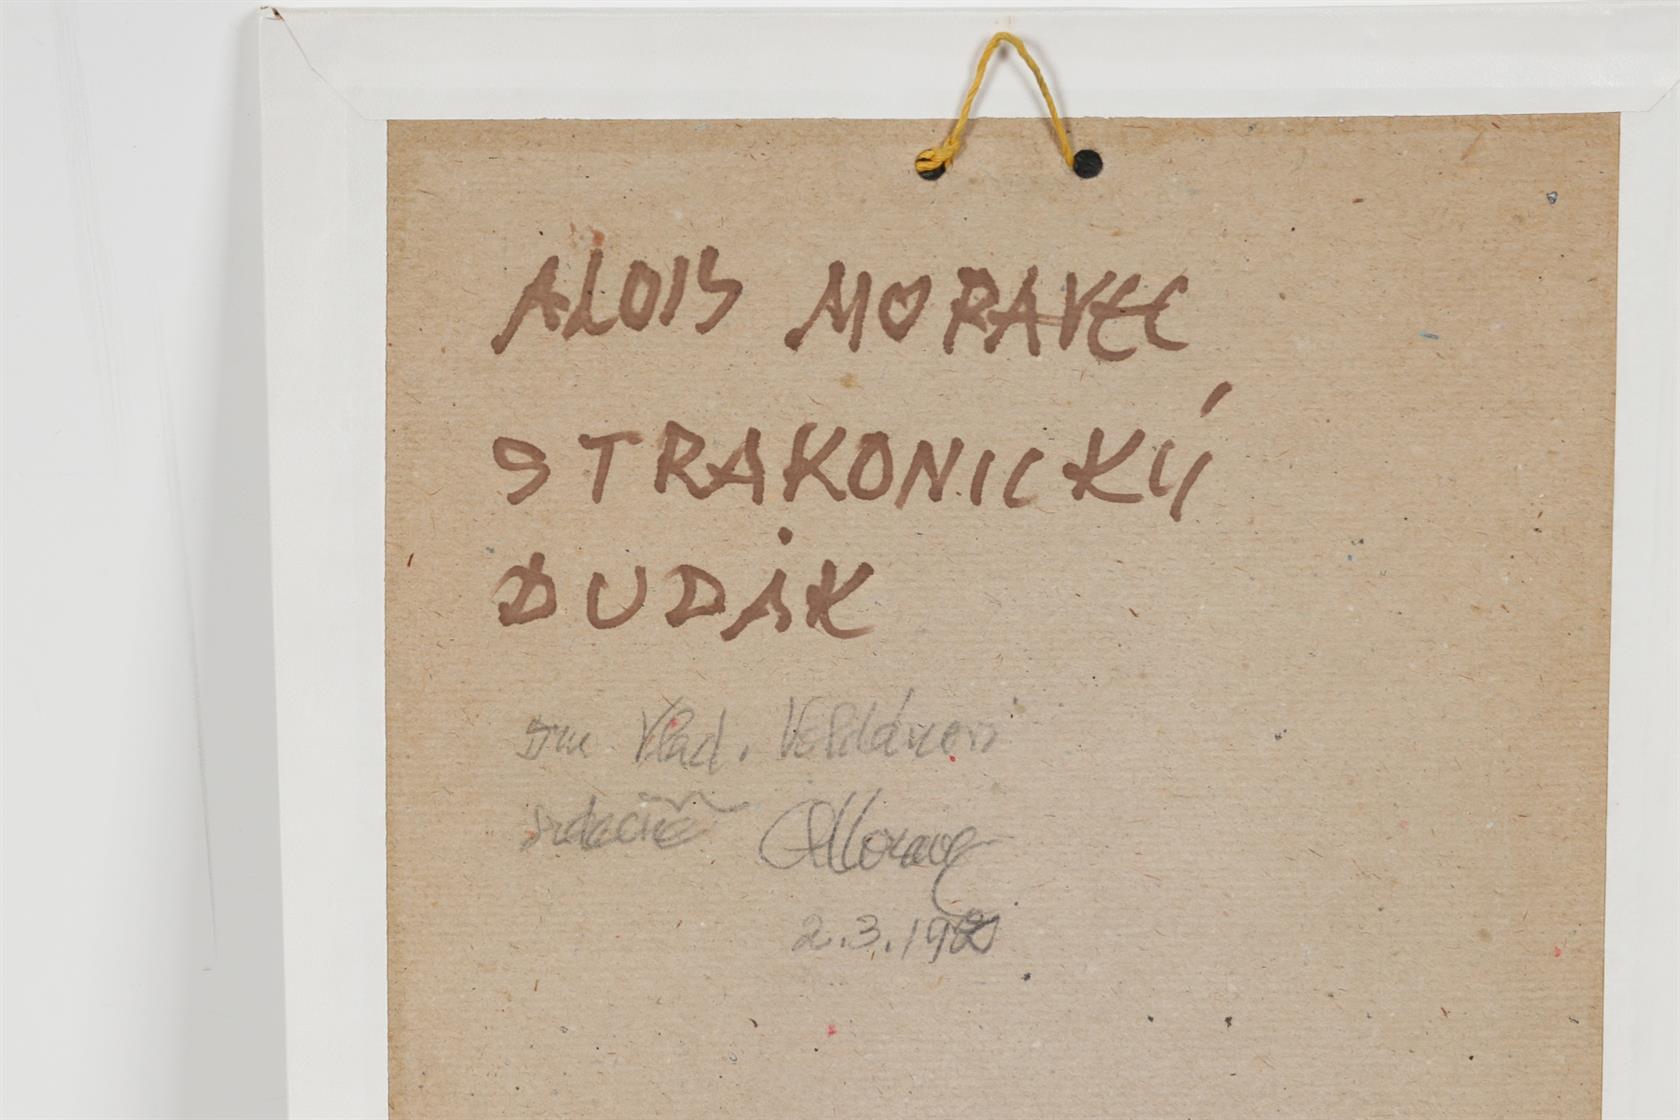 ALOIS MORAVEC
STRAKONICKÝ
DUDÁK
Vlad.
srdečně AMoravec
2.3.19